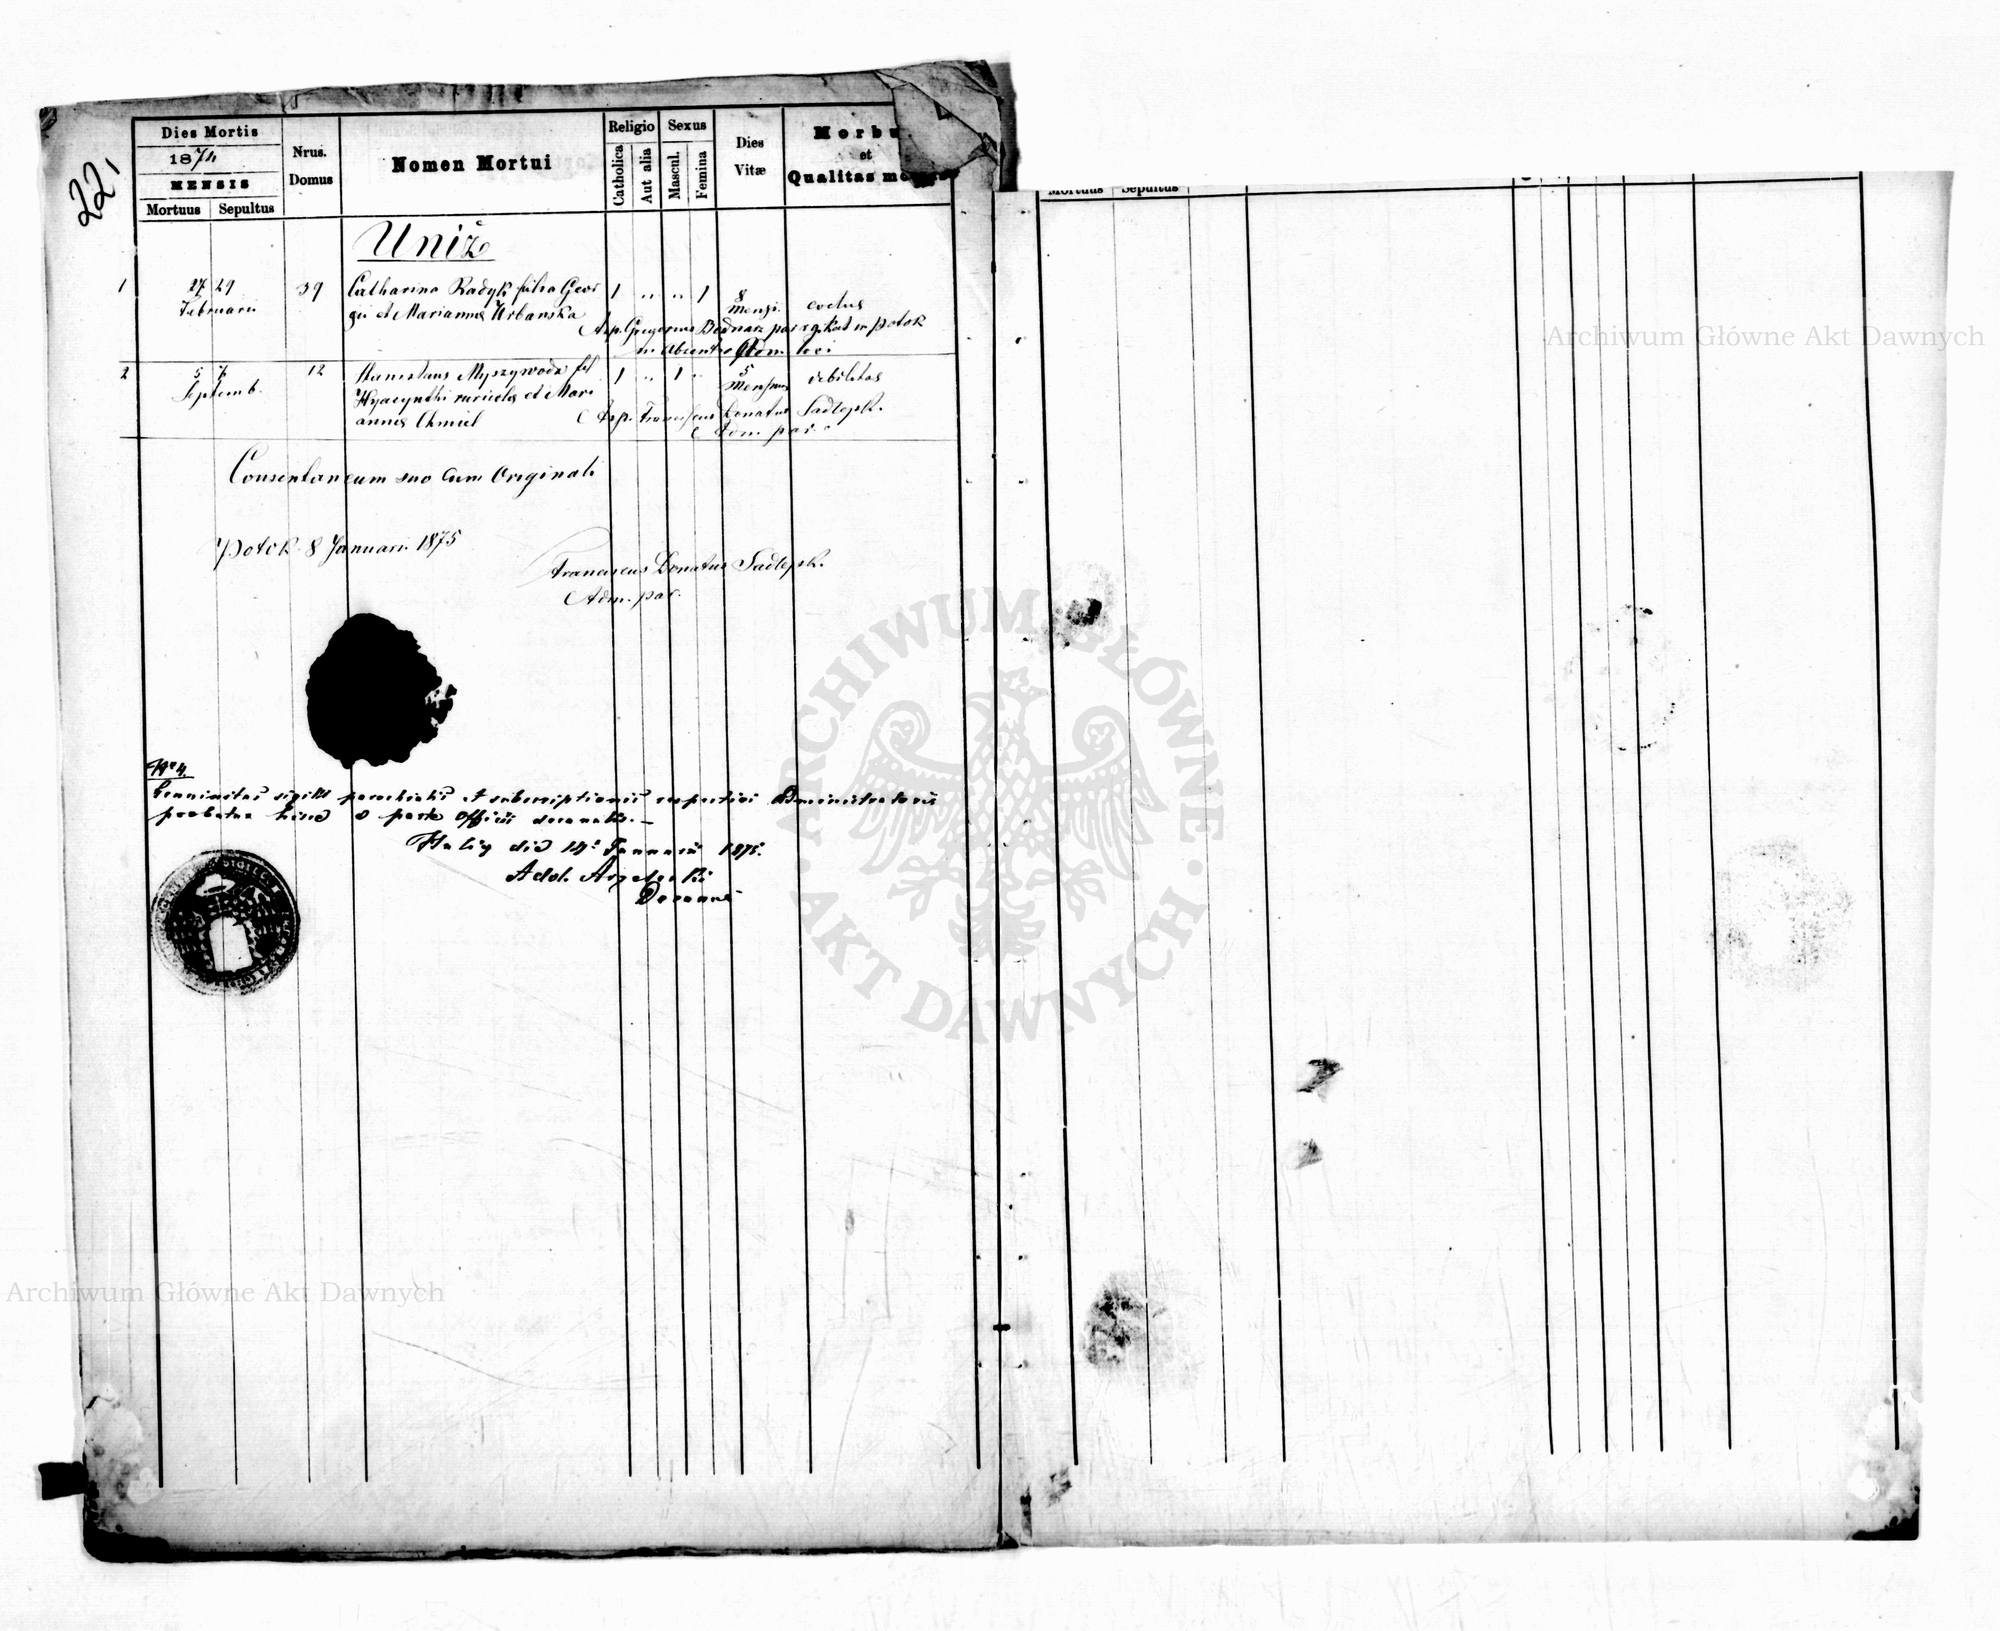 22,
Dies Mortis
1874
MENSIS
Mortuus Sepultus
Nrus. Domus
Nomen Mortui
Religio
Catholica
Aut alia
Sexus
Mascul.
Femina
Dies Vitæ
Morbu
et
Qualitas mo
Mortuus Sepultus
Uniż
1 27 29 39 Catharina Radyk filia Geor 1 " " 1 8
Februarii gii et Mariannes Urbanska Mensi.
Asp. Gregorius Bednarz par. in Potok
in Adm. loci
2 5 7 12 Stanislaus Myszywoda fil 1 " 1 " 5 debilitas
Septemb. Hyacynthi et Mari
annes Chmiel
Asp. Franciscus Donatus Sadłopsk.
Adm. par.
Consentaneum suo cum Originali
Potok 8 Januari 1875
Franciscus Donatus Sadłopsk.
Adm. par.
No 4.
Genuinitas sigilli parochialis et subscriptionis respectivi Administratoris
probatur hisce a parte Officii decanalis.
die 14 Januarii 1875.
Decanus
ARCHIWUM GŁÓWNE AKT DAWNYCH
Archiwum Główne Akt Dawnych
Archiwum Główne Akt Dawnych